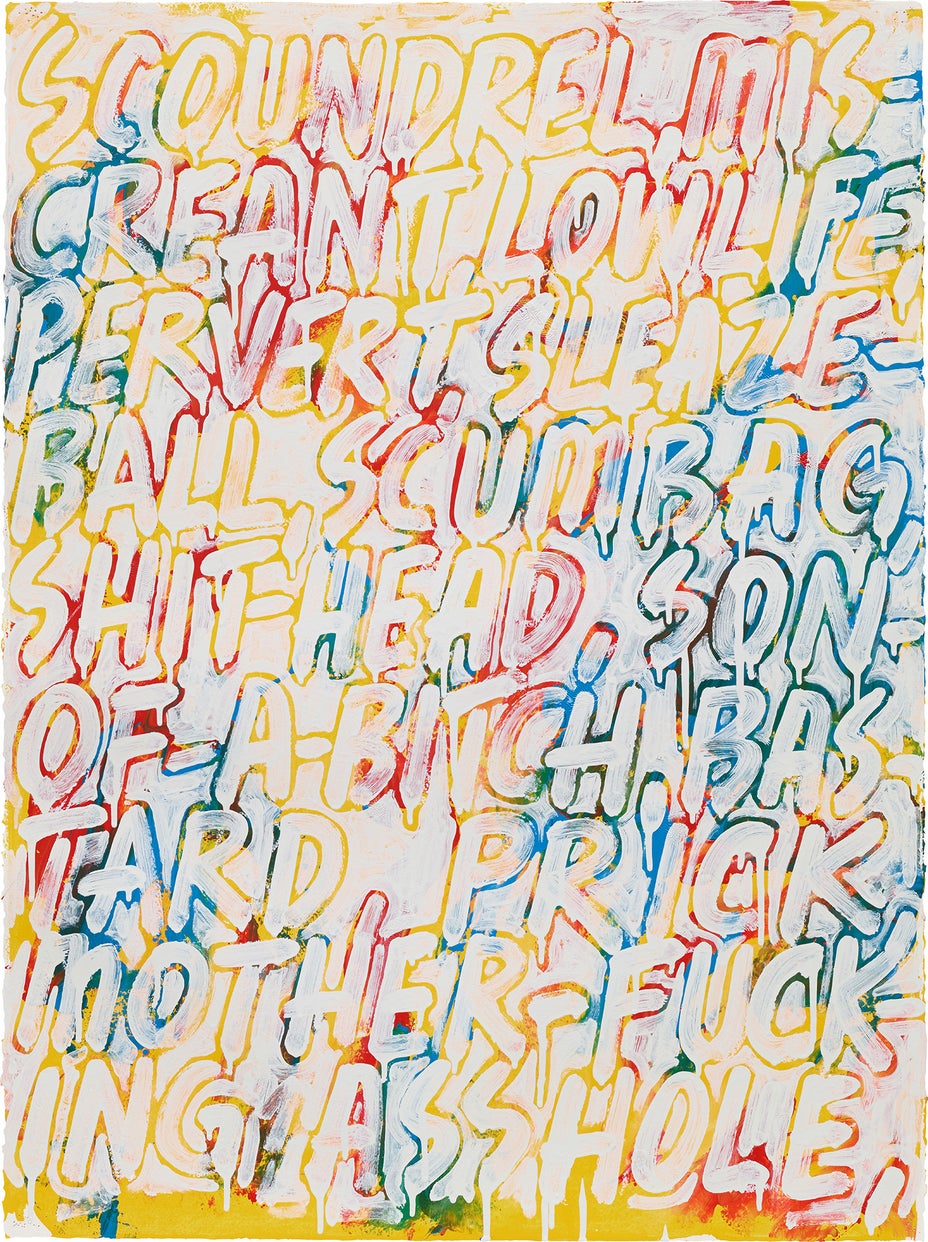 SCOUNDREL, MIS-
CREANT, LOWLIFE,
PERVERT, SLEAZE-
BALL, SCUMBAG,
SHIT-HEAD, SON-
OF-A-BITCH, BAS-
TARD, PRICK,
MOTHER-FUCK-
ING ASSHOLE,